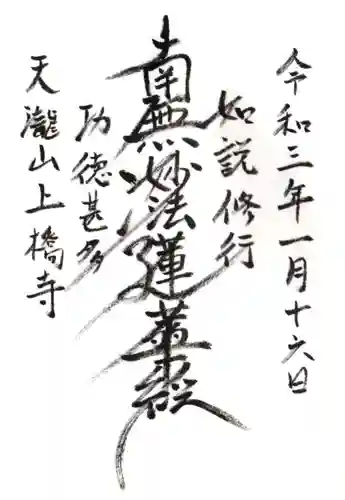 令和三年一月十六日
如説修行
南無妙法蓮華経
功徳甚多
天瀧山上橋寺